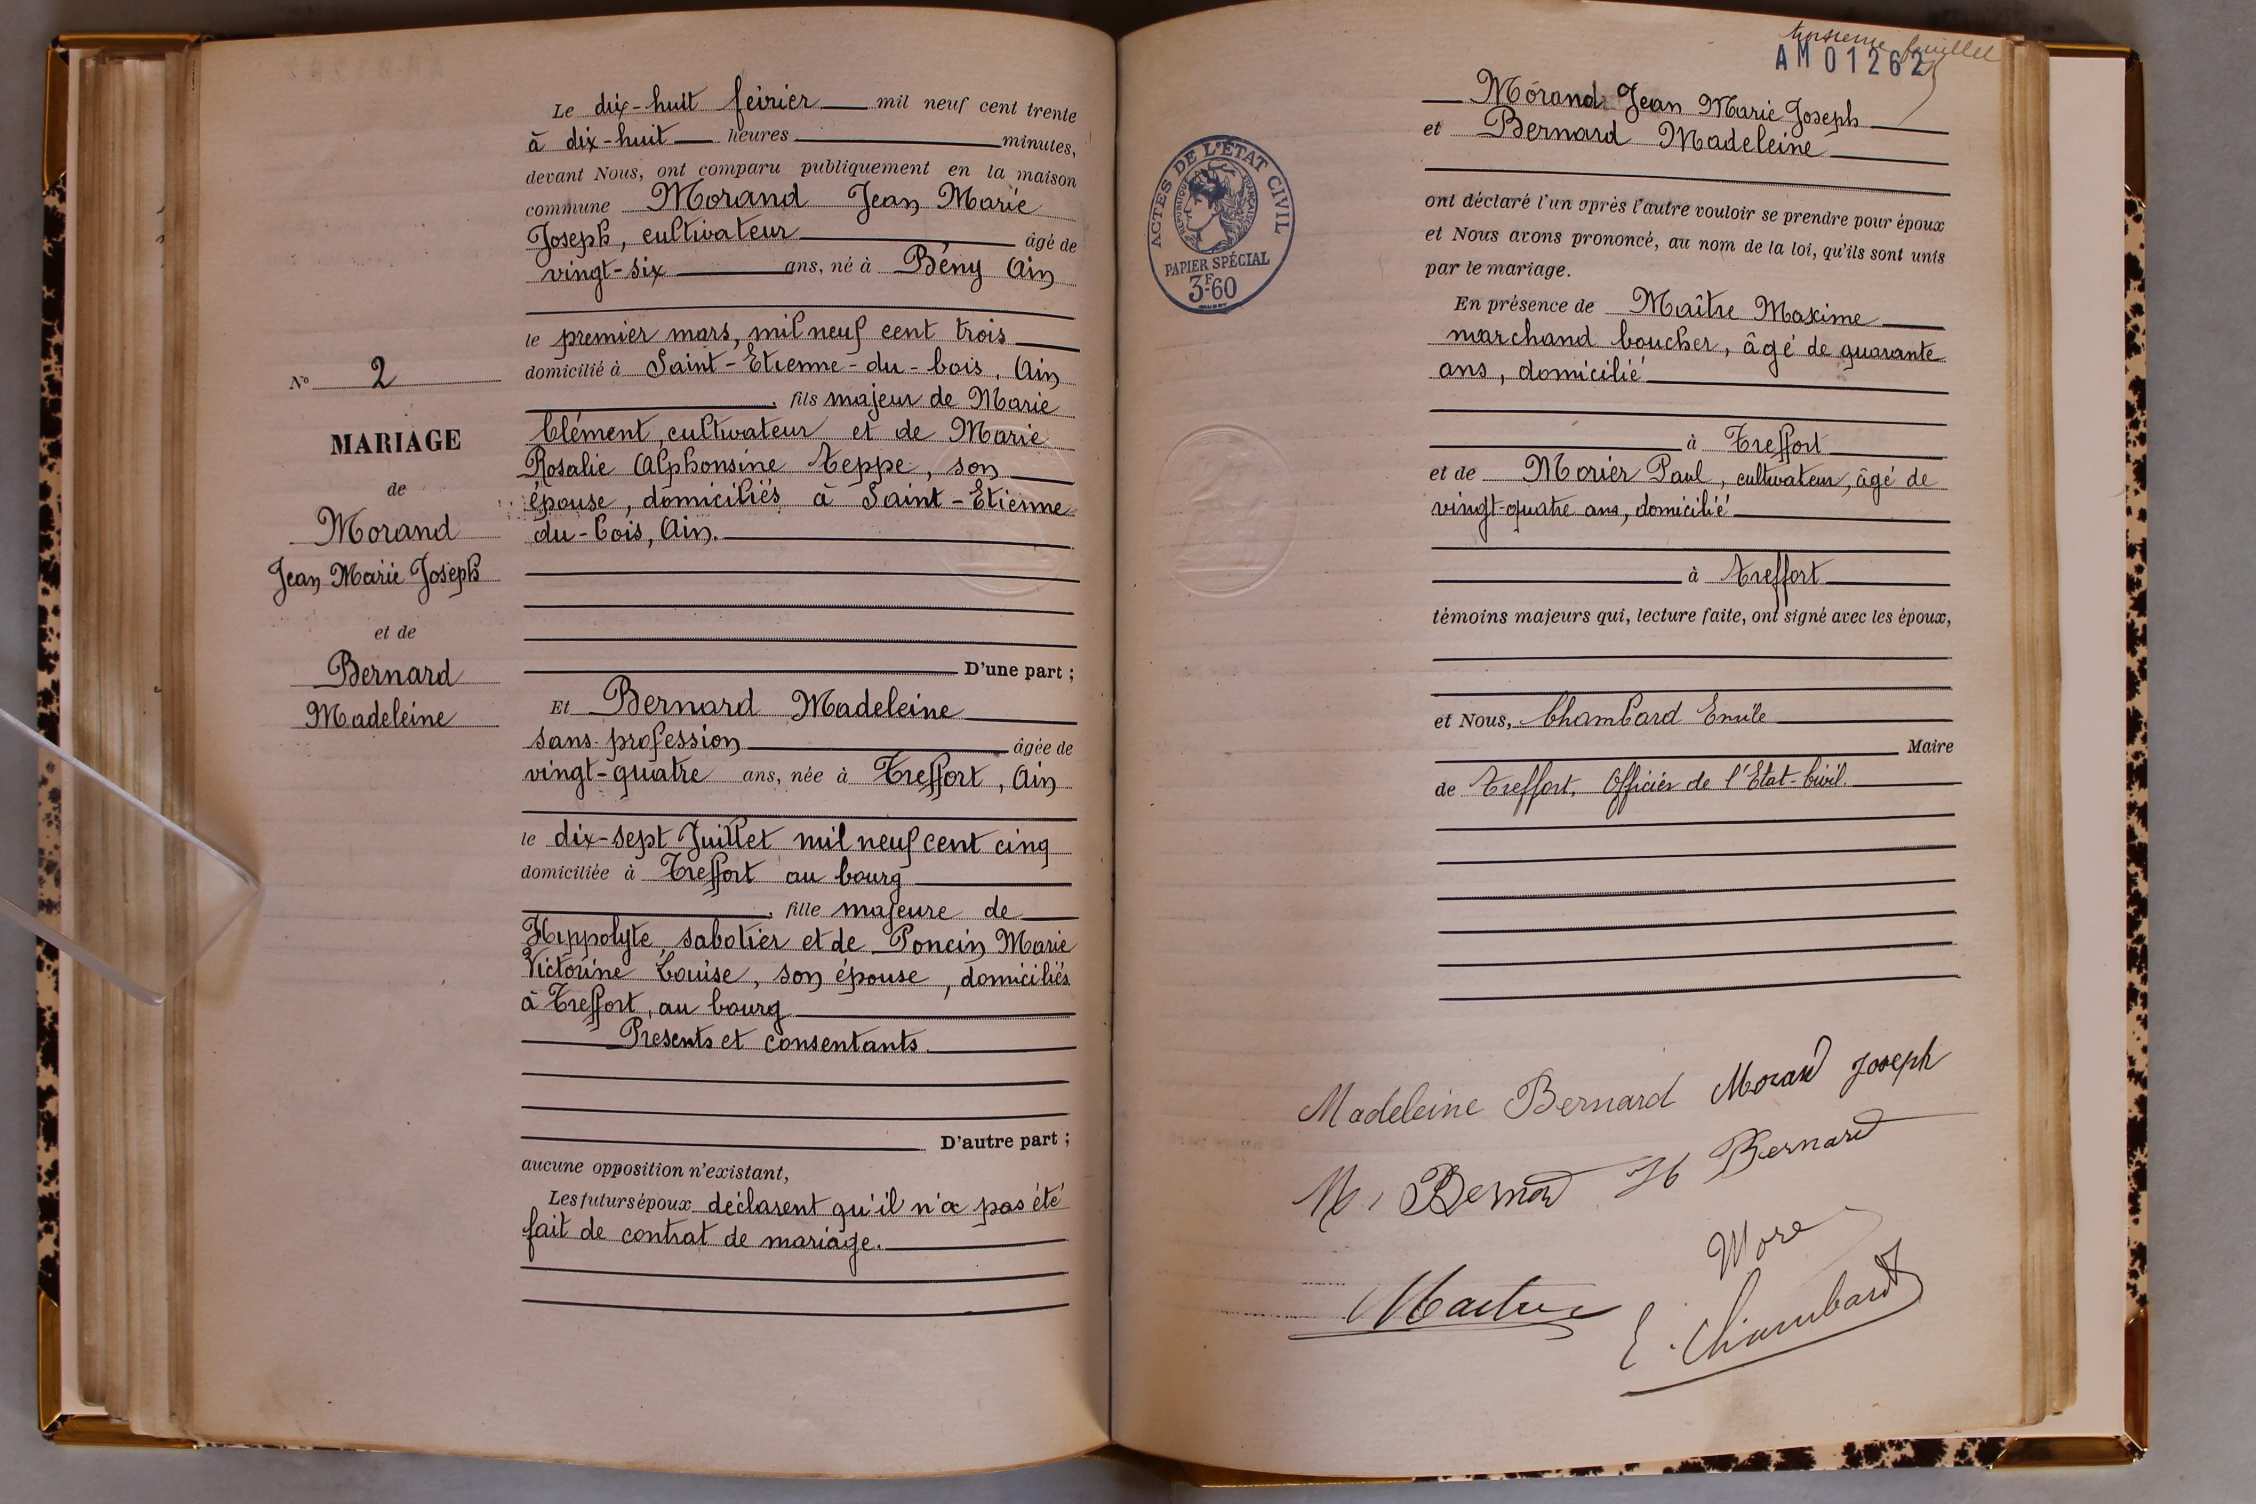 Le dix-huit février mil neuf cent trente
à dix-huit heures minutes,
devant Nous, ont comparu publiquement en la maison
commune Morand Jean Marie
Joseph, cultivateur âgé de
vingt-six ans, né à Bény Ain
le premier mars, mil neuf cent trois
domicilié à Saint-Etienne-du-bois, Ain
, fils majeur de Marie
Clément, cultivateur et de Marie
Rosalie Alphonsine Teppe, son
épouse, domiciliés à Saint-Etienne-
du-bois, Ain.
D'une part ;
Et Bernard Madeleine
sans profession âgée de
vingt-quatre ans, née à Treffort, Ain
le dix-sept Juillet mil neuf cent cinq
domiciliée à Treffort au bourg
, fille majeure de
Hippolyte, sabotier et de Poncin Marie
Victorine Louise, son épouse, domiciliés
à Treffort, au bourg
Presents et consentants.
D'autre part ;
aucune opposition n'existant,
Les futurs époux déclarent qu'il n'a pas été
fait de contrat de mariage.
No 2
MARIAGE
de
Morand
Jean Marie Joseph
et de
Bernard
Madeleine
troisième feuillet
AM01262
Morand Jean Marie Joseph
et Bernard Madeleine
ACTES DE L'ETAT CIVIL
REPUBLIQUE FRANÇAISE
PAPIER SPÉCIAL
3F.60
ont déclaré l'un après l'autre vouloir se prendre pour époux
et Nous avons prononcé, au nom de la loi, qu'ils sont unis
par le mariage.
En présence de Maître Maxime
marchand boucher, âgé de quarante
ans, domicilié
à Treffort
et de Morier Paul, cultivateur, âgé de
vingt-quatre ans, domicilié
à Treffort
témoins majeurs qui, lecture faite, ont signé avec les époux,
et Nous, Chambard Emile
Maire
de Treffort, Officier de l'Etat-Civil.
Madeleine Bernard Morand Joseph
M. Bernard H Bernard
More
Maitre
E. Chambard